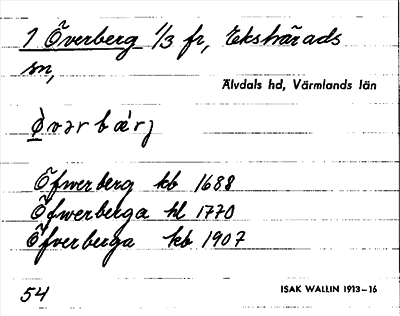 1 Överberg 1/3 fr, Ekshärads
sn,
Älvdals hd, Värmlands län
Öfwerberg kb 1688
Öfwerberga hl 1770
Öfverberga kb 1907
54
ISAK WALLIN 1913–16